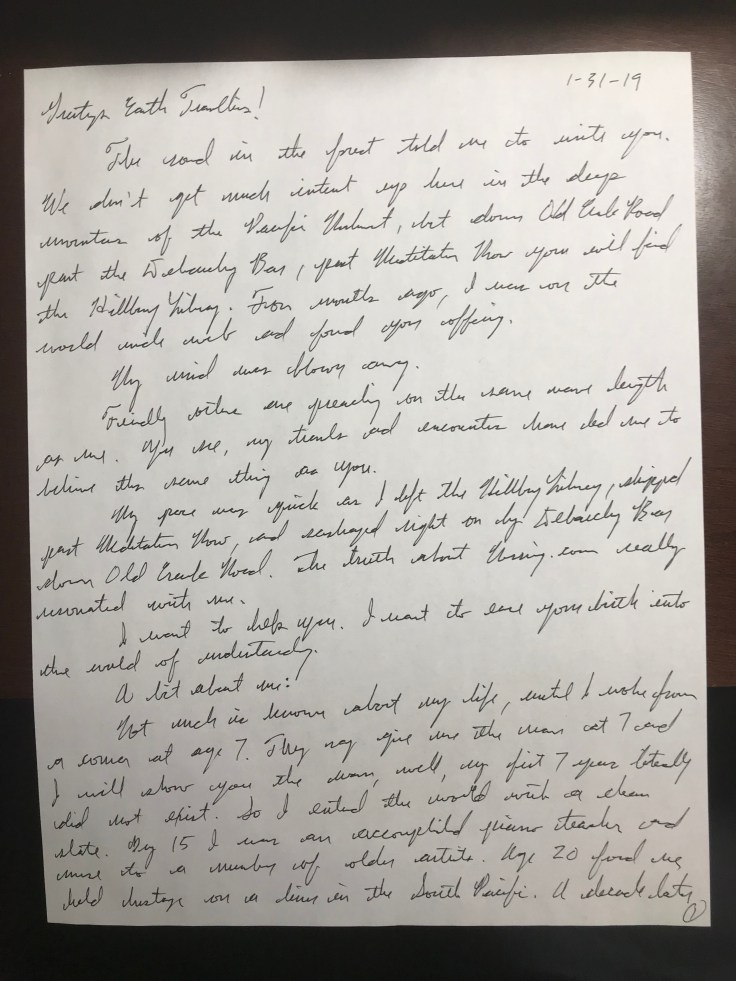 1-31-19
Greetings Earth Travelers!
The wind in the forest told me to write you.
We don't get much internet up here in the deep
mountains of the Pacific Northwest, but down Old Creek Road
past the Debauchery Bar, past Meditation Row you will find
the Hillbny Library. Four months ago, I was on the
world wide web and found your offering.
My mind was blown away.
Friendly voices are preaching on the same wave length
as me. You see, my travels and encounters have led me to
believe the same thing as you.
My pace was quick as I left the Library, skipped
past Meditation Row, and sashayed right on by Debauchery Bar
down Old Creek Road. The truth about really
resonated with me.
I want to help you. I want to ease your birth into
the world of understanding.
A bit about me:
Not much is known about my life, until I woke from
a coma at age 7. They say give me the man at 7 and
I will show you the man, well, my first 7 years totally
did not exist. So I entered the world with a clean
slate. By 15 I was an accomplished piano teacher and
muse to a number of older artists. Age 20 found me
held hostage on a in the South Pacific. A decade later,
1